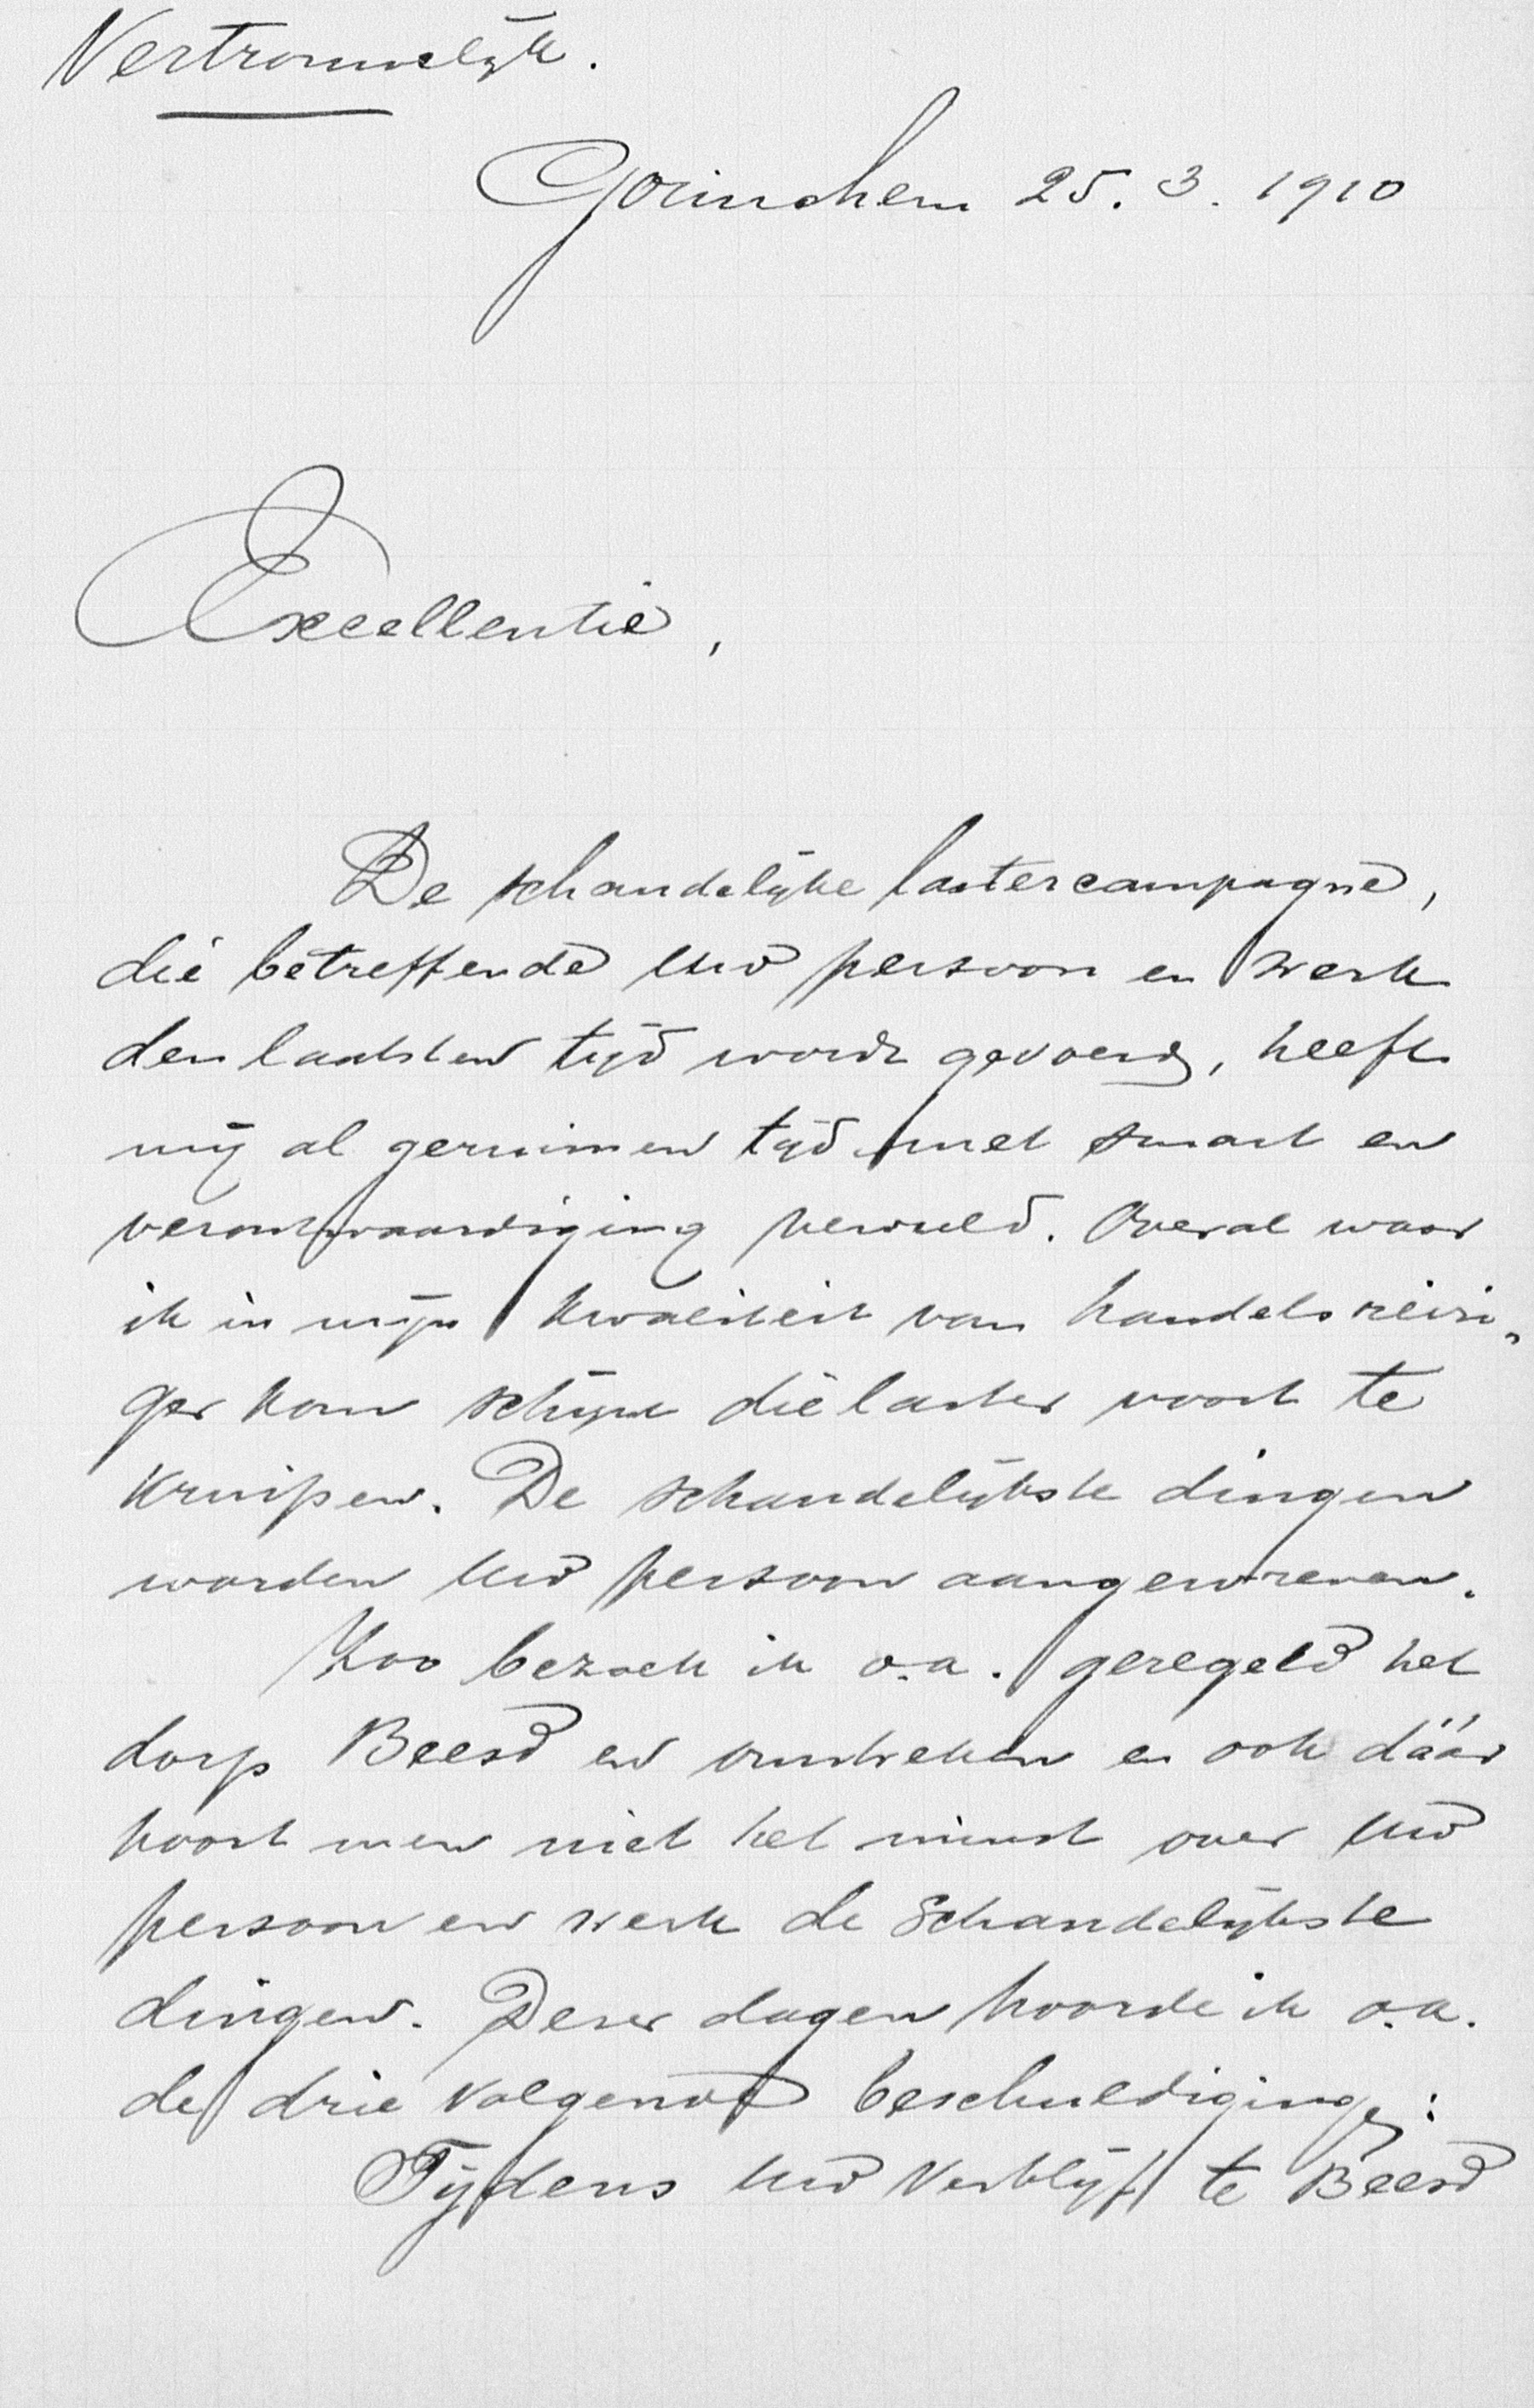 Vertrouwelijk.
Gorinchem 25. 3. 1910
Excellentie,
De schandelijke lastercampagne,
die betreffende Uw persoon en werk
den laatsten tijd wordt gevoerd, heeft
mij al geruimen tijd met smart en
verontwaardiging vervuld. Overal waar
ik in mijn kwaliteit van handelsreizi„
ger kom schijnt die laster voort te
kruipen. De schandelijkste dingen
worden Uw persoon aangewreven.
Zoo bezoek ik o.a. geregeld het
dorp Beesd en omstreken en ook dáár
hoort men niet het minst over Uw
persoon en werk de schandelijkste
dingen. Dezer dagen hoorde ik o.a.
de drie volgende beschuldigingen:
Tijdens Uw verblijf te Beesd